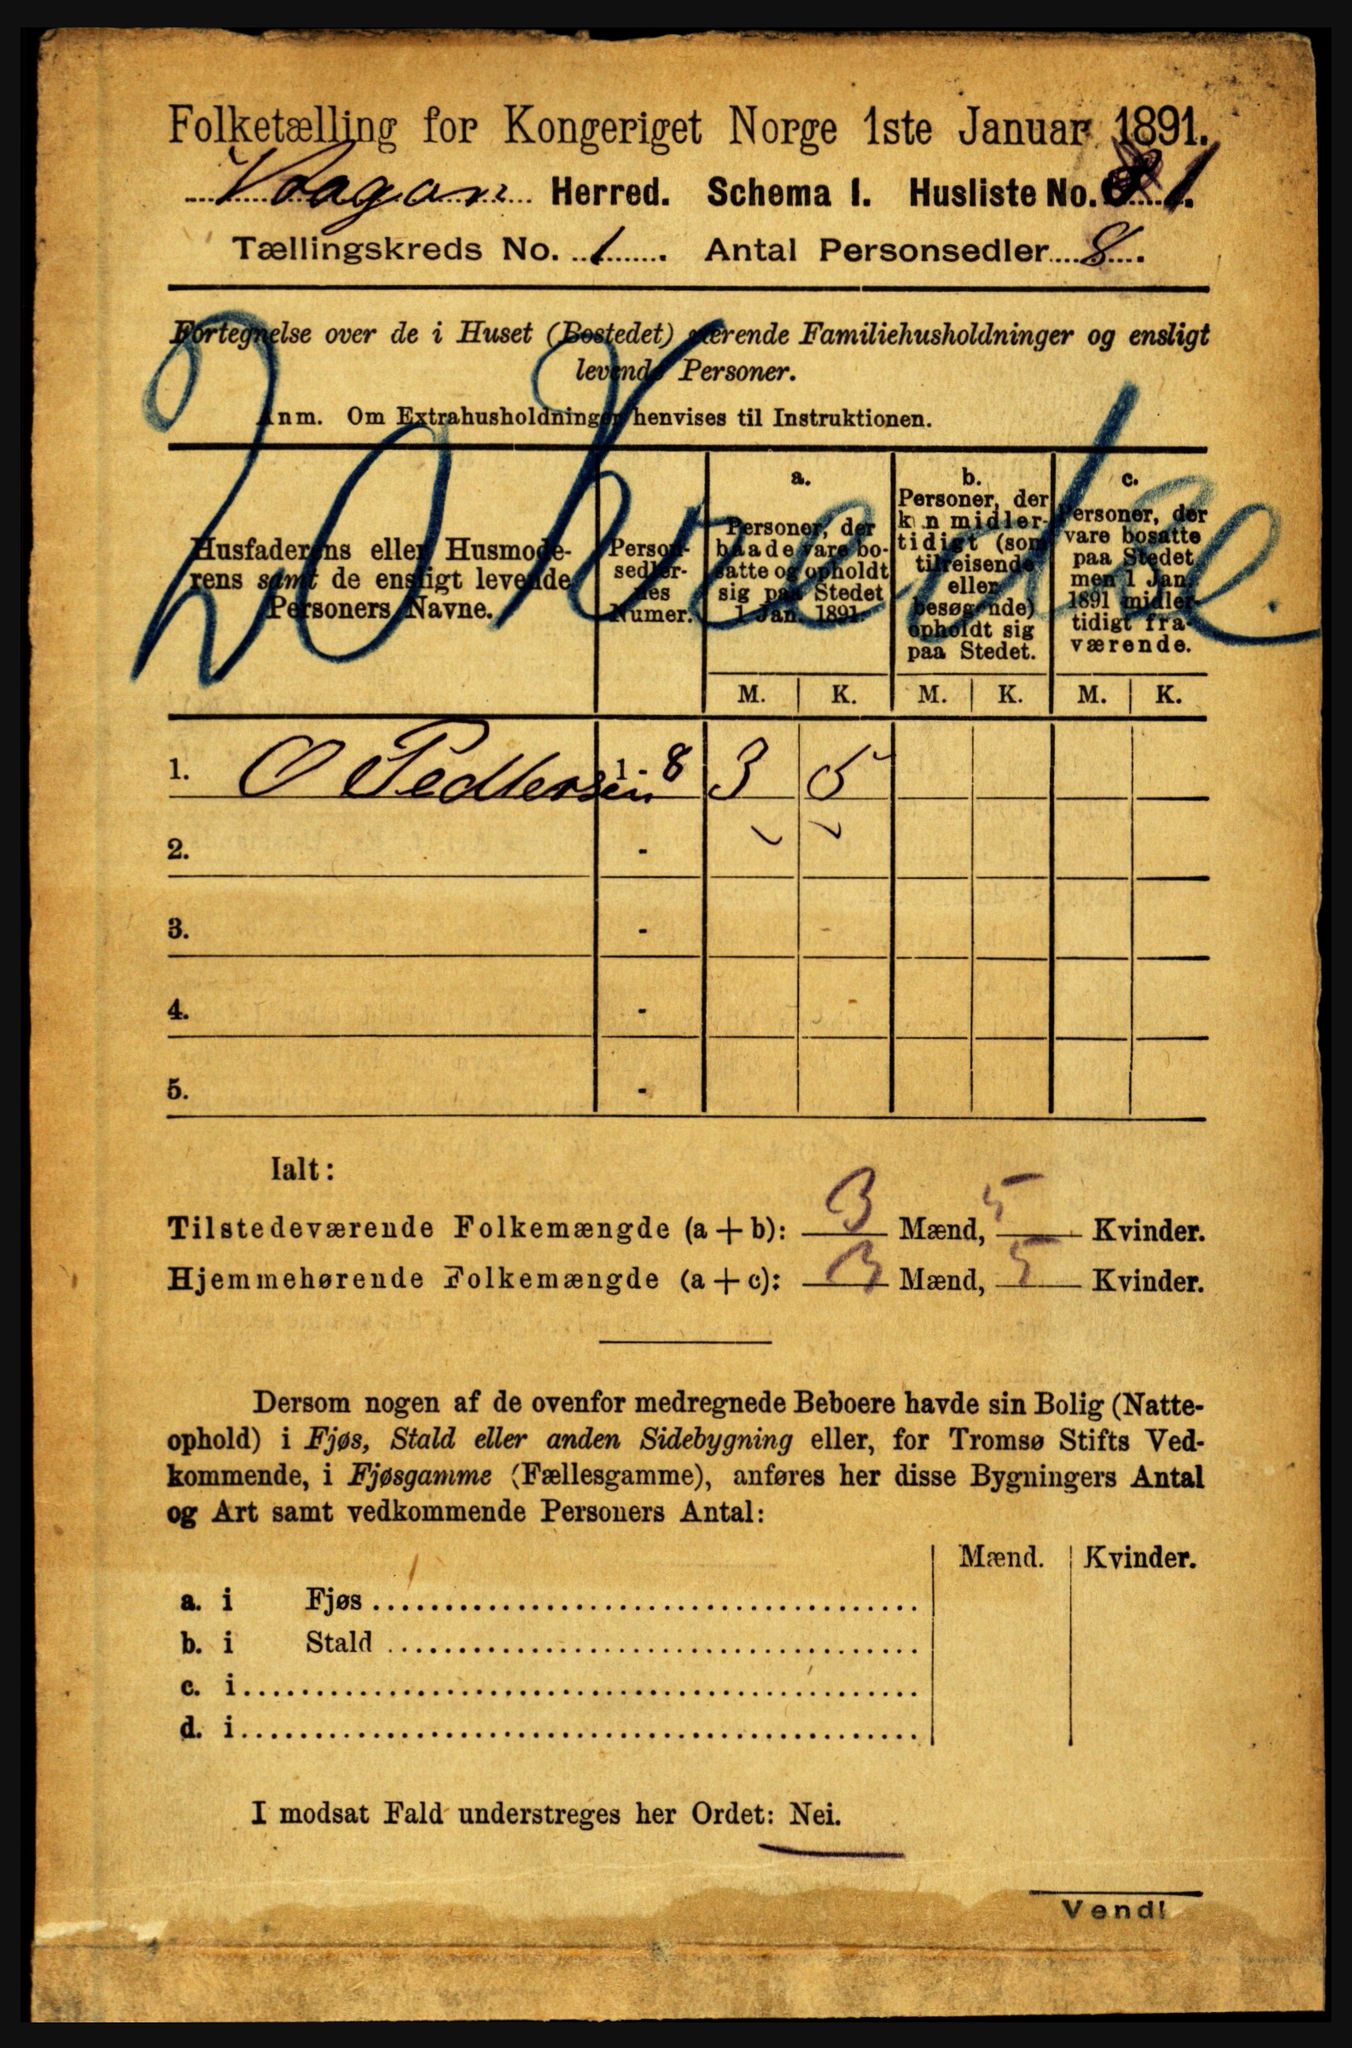 Folketælling for Kongeriget Norge 1ste Januar 1891.
Vaagan Herred. Schema I. Husliste No. 1.
Tællingskreds No. 1. Antal Personsedler 8.
Fortegnelse over de i Huset (Bostedet) værende Familiehusholdninger og ensligt
levende Personer.
Anm. Om Extrahusholdninger henvises til Instruktionen.
20 Kreds.
Husfaderens eller Husmode-
rens samt de ensligt levende
Personers Navne.
Person-
sedler-
nes
Numer.
a.
Personer, der
baade vare bo-
satte og opholdt
sig paa Stedet
1 Jan. 1891.
b.
Personer, der
kun midler-
tidigt (som
tilreisende
eller
besøgende)
opholdt sig
paa Stedet.
c.
Personer, der
vare bosatte
paa Stedet
men 1 Jan.
1891 midler-
tidigt fra-
værende.
M. K. M. K. M. K.
1. O Pedtersen 1-8 3 5
2. -
3. -
4. -
5. -
Ialt:
Tilstedeværende Folkemængde (a+b): 3 Mænd, 5 Kvinder.
Hjemmehørende Folkemængde (a+c): 3 Mænd, 5 Kvinder.
Dersom nogen af de ovenfor medregnede Beboere havde sin Bolig (Natte-
ophold) i Fjøs, Stald eller anden Sidebygning eller, for Tromsø Stifts Ved-
kommende, i Fjøsgamme (Fællesgamme), anføres her disse Bygningers Antal
og Art samt vedkommende Personers Antal:
Mænd. Kvinder.
a. i Fjøs
b. i Stald
c. i
d. i
I modsat Fald understreges her Ordet: Nei.
Vend!